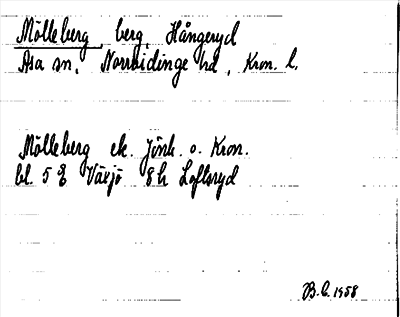 Mölleberg, berg, Hångeryd
Asa sn, Norrvidinge hd, Kron. l.
Mölleberg ek. Jönk. o. Kron.
bl. 5 Växjö 8h Loftsryd
1958